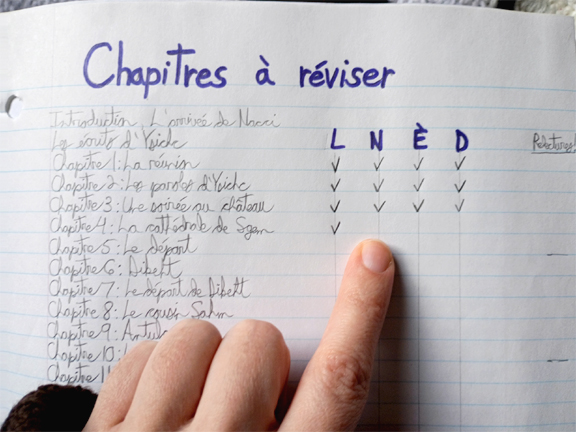 Chapitres à réviser
Introduction L'arrivée de Nacci
Les écrits d'Yside
L N È D
Relectures
Chapitre 1 : La réunion ✓ ✓ ✓ ✓
Chapitre 2 : Les paroles d'Yside ✓ ✓ ✓ ✓
Chapitre 3 : Une soirée au château ✓ ✓ ✓ ✓
Chapitre 4 : La cathédrale de ✓
Chapitre 5 : Le départ
Chapitre 6 : Dibett
Chapitre 7 : Le départ de Dibett
Chapitre 8 : Le cousin Sahm
Chapitre 9 :
Chapitre 10 :
Chapitre